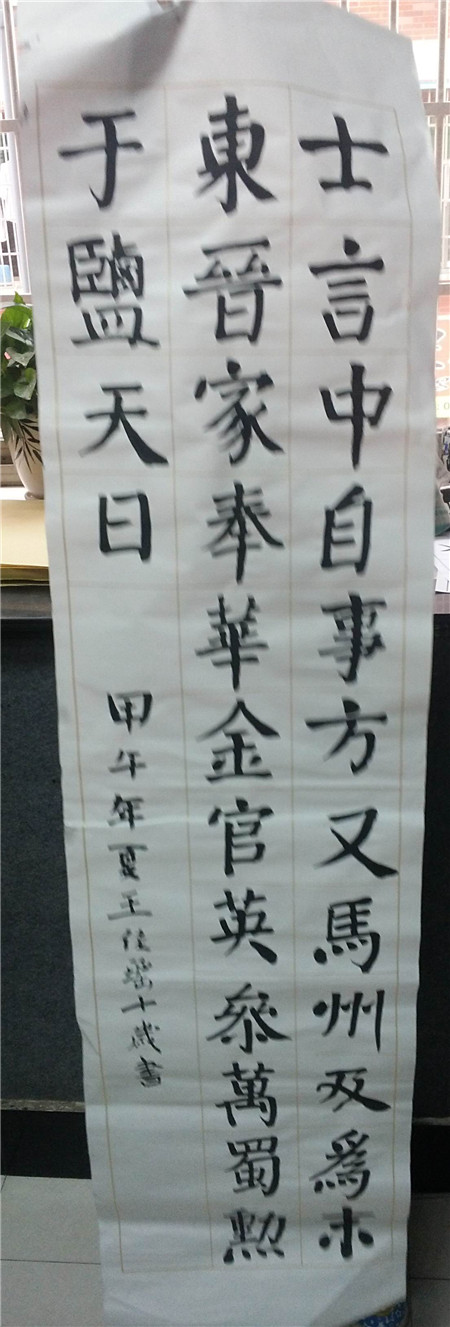 士言中自事方又馬州及爲未
東晉家奉華金官英叅萬蜀勲
于鹽天日
甲午年夏王佳瑤十歲書